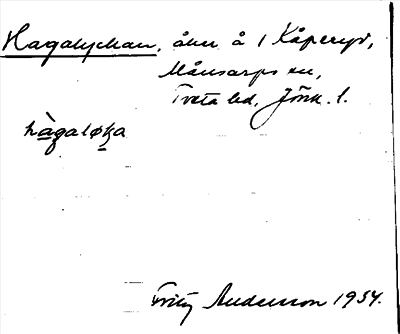 Hagalyckan, åker å 1 Kåperyd,
Månsarps sn,
Tveta hd, Jönk. l.
hàgaløka
Fritz Andersson 1934.